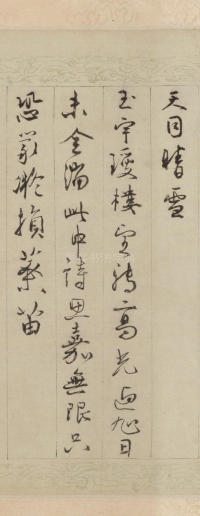 天目晴雪
玉宇瓊樓高光迎旭日
未全消此中詩思嘉無限只
恐嚴凝損藥苗